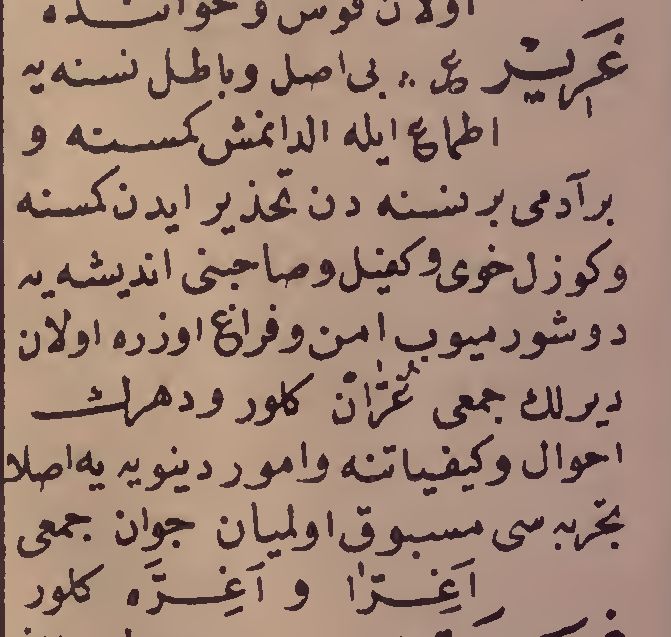 اولان قوس و خواننده
غَرِيْر ع ؞ بی اصل و باطل نسنه یه
اطماع ایله الدانمش کمسنه و
بر آدمی بر نسنه دن تحذیر ایدن کسنه
و کوزل خوی و کفیل و صاحبنی اندیشه یه
دوشورمیوب امن و فراغ اوزره اولان
دیرلك جمعی غُرَّانْ کلور و دهرك
احوال و کیفیاتنه و امور دینویه یه اصلا
تجربه سی مسبوق اولمیان جوان جمعی
اَغِرَّا و اَغِرَّه کلور